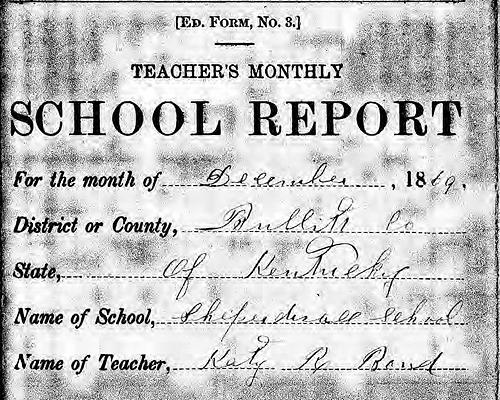 [ED. FORM, NO. 3.]
TEACHER'S MONTHLY
SCHOOL REPORT
For the month of December, 1869.
District or County, Bullitt Co
State, Of Kentucky
Name of School, Sheperdsvill School
Name of Teacher, Katy R Bond